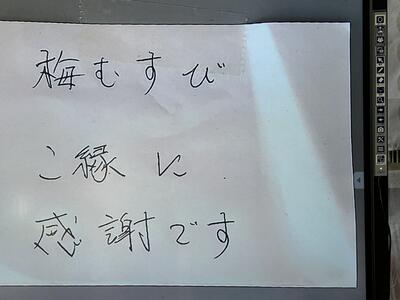 梅むすび
ご縁に
感謝です